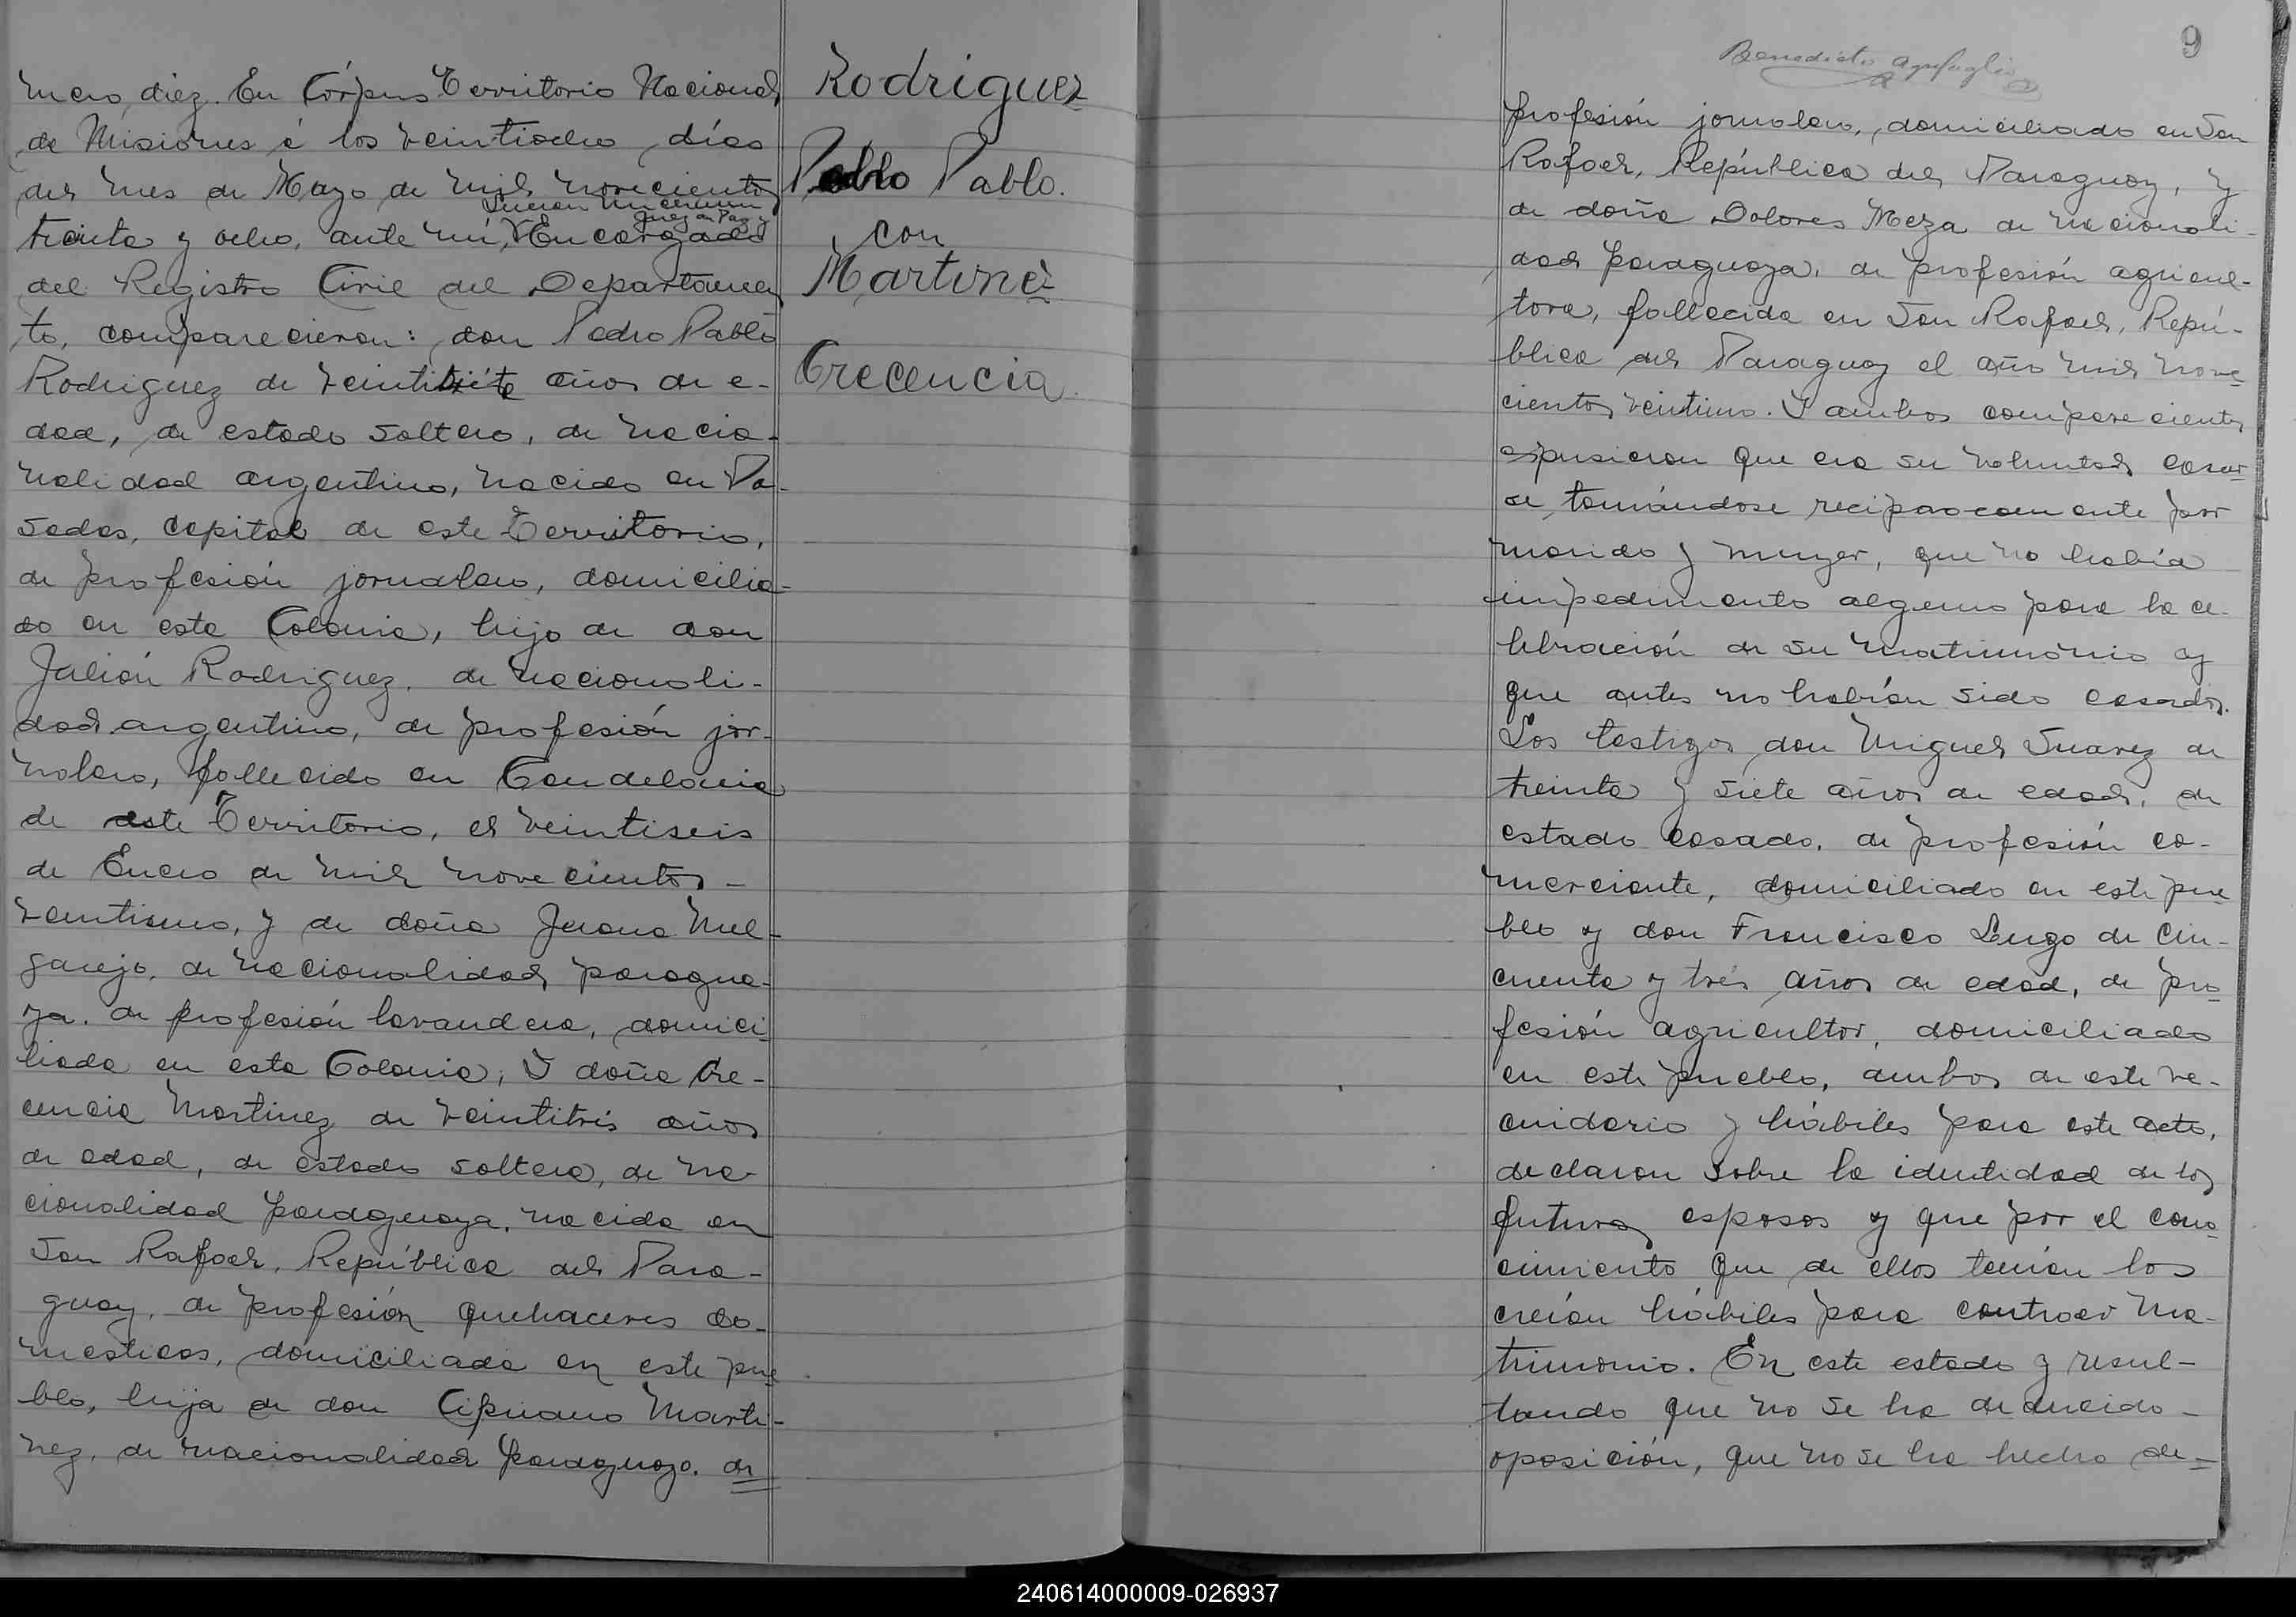 mero diez. En Córpus Territorio Nacional
de Misiones á los veintiocho días
del mes de Mayo de mil novecientos
treinta y ocho, ante mí, Encargado
Juez de Paz y
del Registro Civil del Departamen
to, comparecieron: don Pedro Pablo
Rodriguez de veintisiete años de e-
dad, de estado soltero, de nacio-
nalidad argentino, nacido en Po-
sadas, capital de este Territorio,
de profesión jornalero, domicilia-
do en esta Colonia, hijo de don
Julián Rodriguez, de nacionali-
dad argentino, de profesión jor-
nalero, fallecido en Candelaria
de este Territorio, el veintiseis
de Enero de mil novecientos-
veintiuno, y de doña Juana Mel-
garejo, de nacionalidad paragua-
ya, de profesión lavandera, domici
liada en esta Colonia; Y doña Cre-
cencia Martinez de veintitrés años
de edad, de estado soltera, de na-
cionalidad paraguaya, nacida en
San Rafael, República del Para-
guay, de profesión quehaceres do-
mesticos, domiciliada en este pue
blo, hija de don Cipriano Marti-
nez, de nacionalidad paraguayo, de
Rodriguez
Pablo Pablo.
con
Martinez
Crecencia.
9
Benedicto
profesión jornalero, domiciliado en San
Rafael, República del Paraguay, y
de doña Dolores Meza de nacionali-
dad paraguaya, de profesión agricul-
tora, fallecida en San Rafael, Repú-
blica del Paraguay el año mil nove
cientos veintiuno. Y ambos comparecientes
expusieron que era su voluntad casar
se, tomándose reciprocamente por
marido y muger, que no había
impedimento alguno para la ce-
lebración de su matrimónio y
que antes no habían sido casados.
Los testigos don Miguel Suarez de
treinta y siete años de edad, de
estado casado, de profesión co-
merciante, domiciliado en este pue
blo y don Francisco Lugo de cin-
cuenta y trés años de edad, de pro
fesión agricultor, domiciliado
en este pueblo, ambos de este ve-
cindario y hábiles para este acto,
declaron sobre la identidad de los
futuros esposos y que por el cono
cimiento que de ellos tenían los
creían hábiles para contraer ma-
trimonio. En este estado y resul-
tando que no se ha deducido-
oposición, que no se ha hecho de-
240614000009-026937